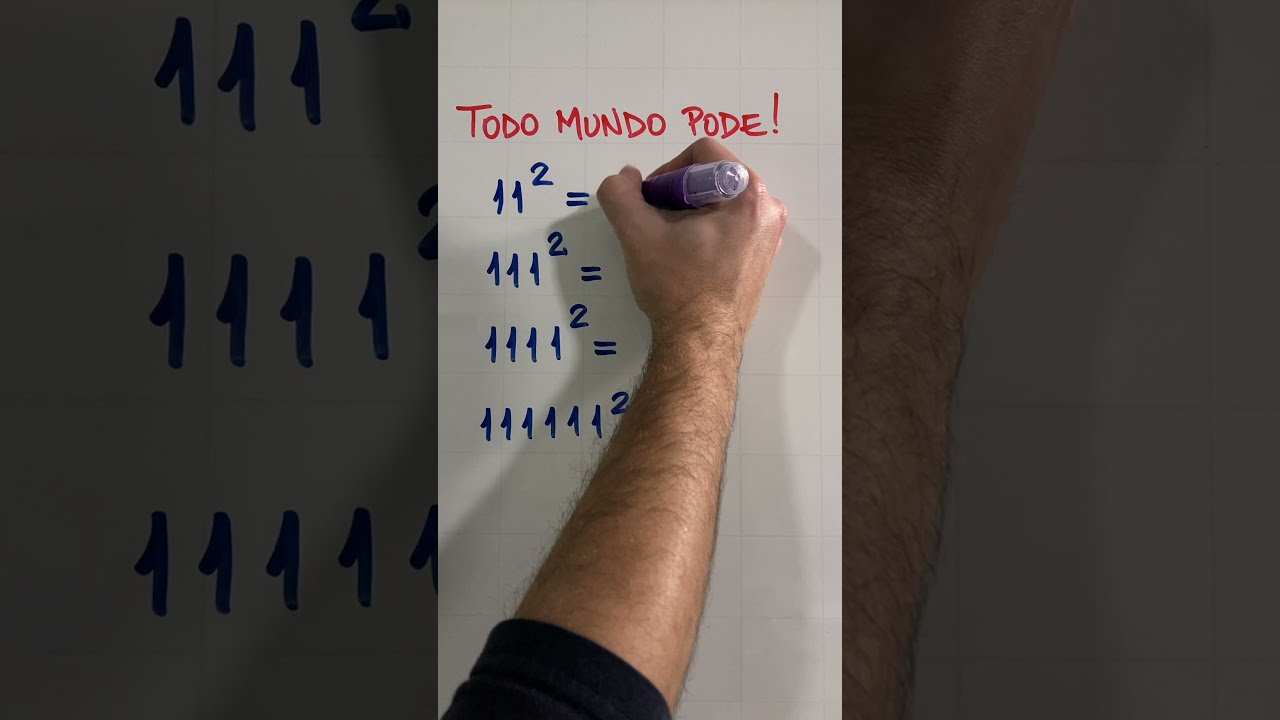 TODO MUNDO PODE!
11² =
111² =
1111² =
111111²